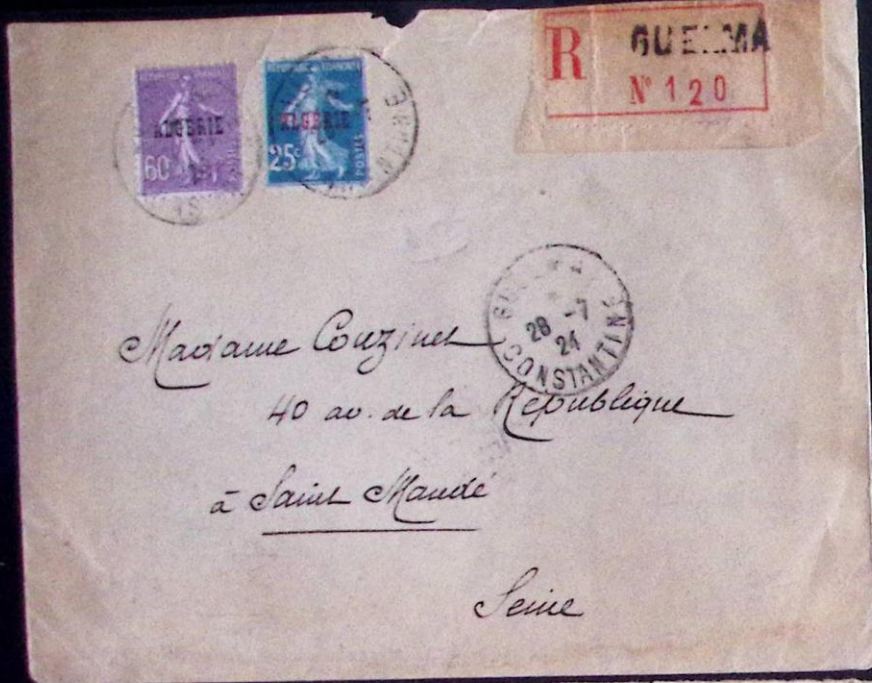 REPUBLIQUE FRANCAISE
ALGERIE
60c
POSTES
REPUBLIQUE FRANCAISE
ALGERIE
25c
POSTES
R GUELMA
Nº 120
GUELMA
28 -7
24
CONSTANTINE
Madame Couzinet
40 av. de la République
à Saint Mandé
Seine